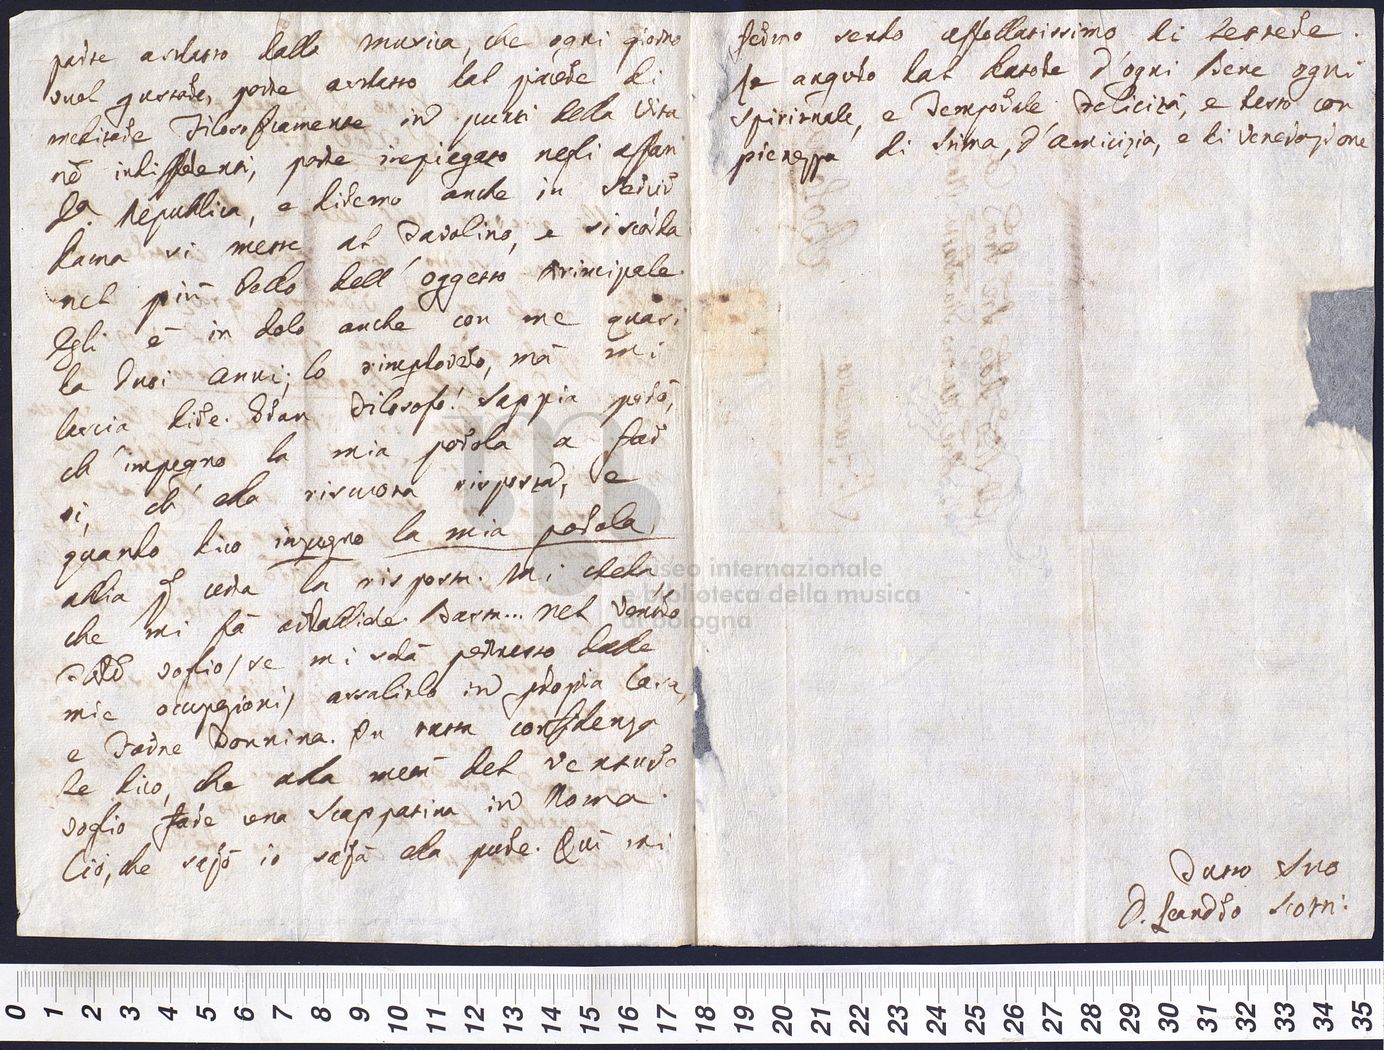 parte astratto dalla musica, che ogni giorno
vuol gustare, parte astratto dal piacere di
meditare filosoficamente in punti della vita
nõ indifferenti, parte impiegato negli affari
Repubblica, e diremo anche in
dama si mette al Tavolino, e si scorda
nel più bello dell'oggetto principale.
Egli è in dolo anche con me quasi
da dieci anni; lo rimprovero, mà mi
lascia dire. Gran Filosofo! Sappia però,
ch'impegno la mia parola a far
si, ch'ella riscuota risposta, e
quando dico impegno la mia parola
abbia p certa la risposta. Mi
che mi fà Basta... nel venturo
voglio, se mi sarà permesso dalle
mie occupazioni, assalirlo in propria Casa,
e Donnina. In tutta confidenza
Le dico, che alla metà del venturo
voglio fare una scappatina in Roma.
Ciò, che sarò io sarà ella pure. Quì mi
fermo sendo affollatissimo di lettere.
Le auguro dal datore d'ogni Bene ogni
spirituale, e temporale felicità, e resto con
pienezza di stima, d'amicizia, e di venerazione
Tutto Suo
D. Leandro Scotti
museo internazionale
e biblioteca della musica
di bologna
0 1 2 3 4 5 6 7 8 9 10 11 12 13 14 15 16 17 18 19 20 21 22 23 24 25 26 27 28 29 30 31 32 33 34 35